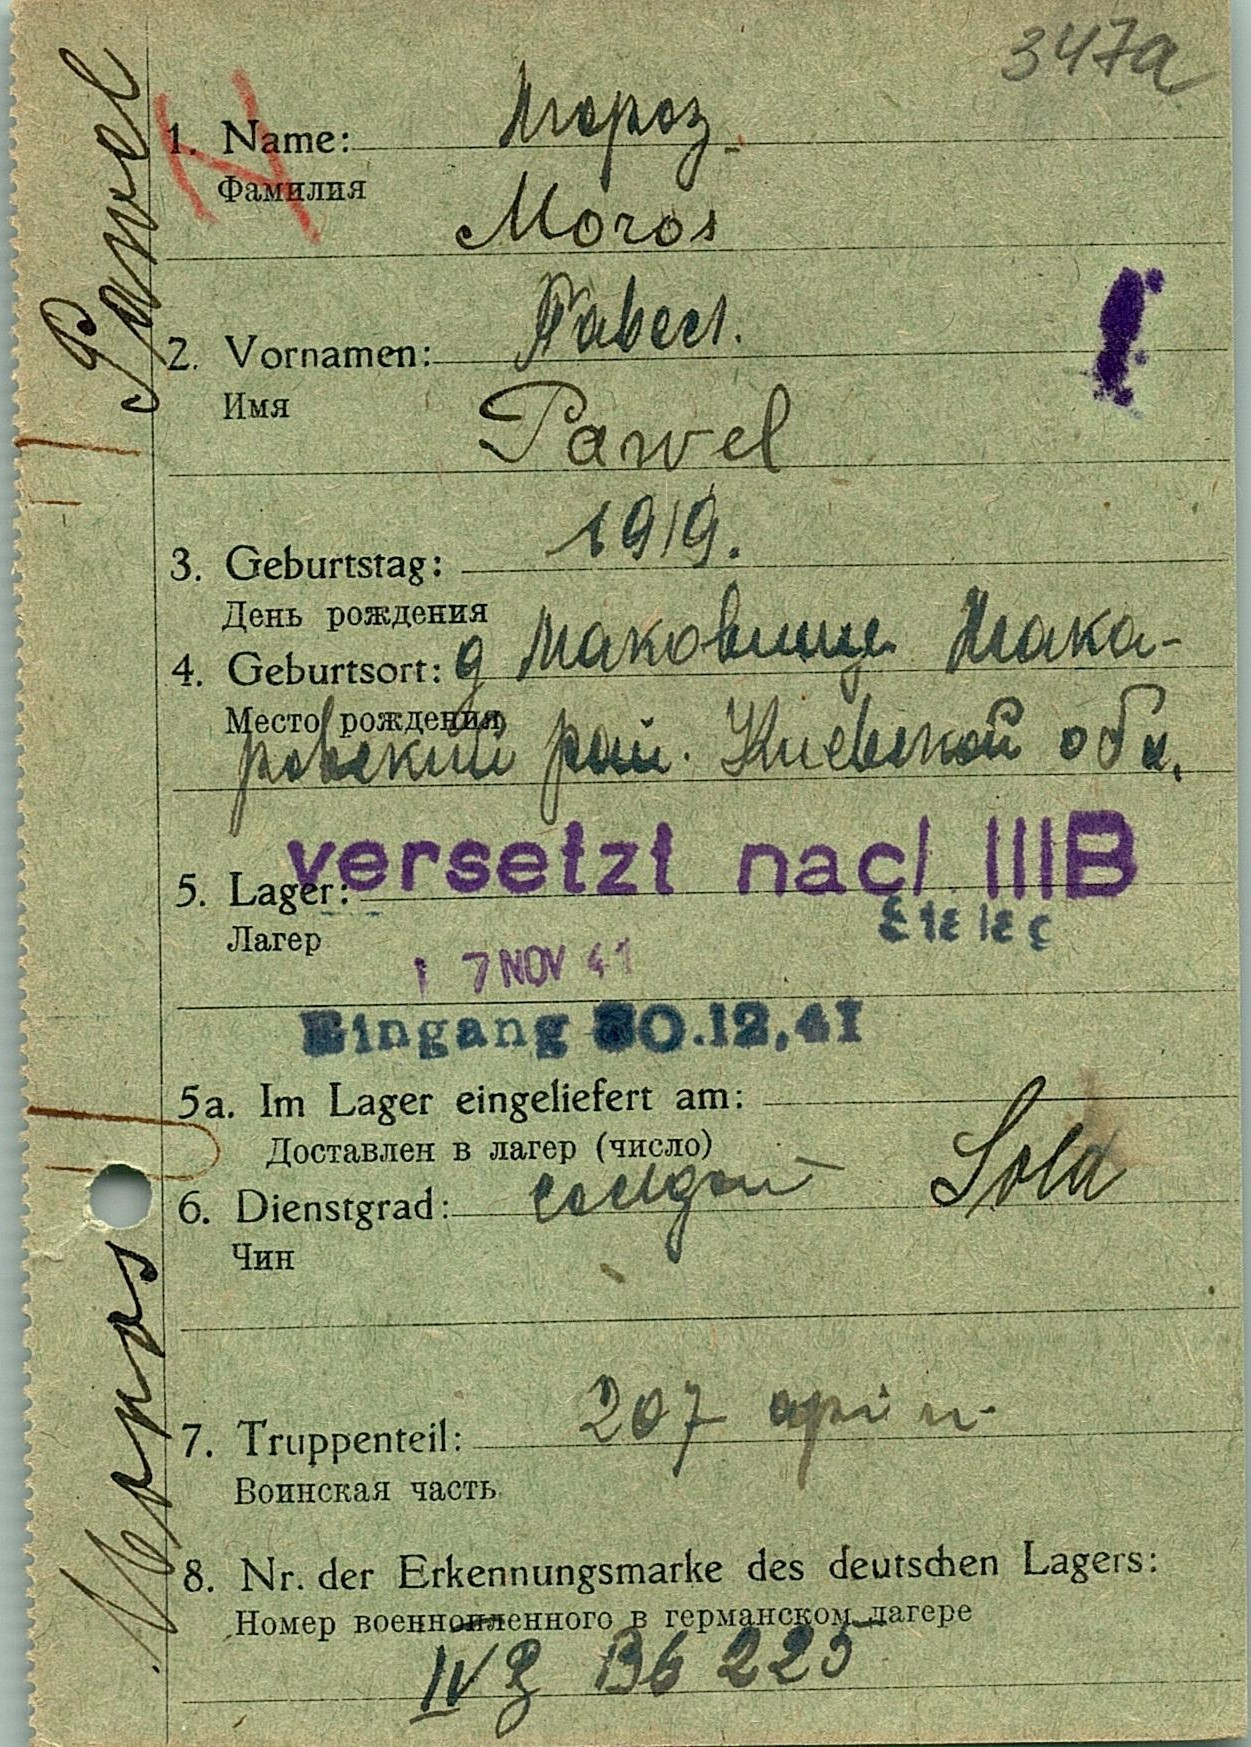 347a
Pawel
Мороз
1. Name:
Фамилия
Moros
Павел.
2. Vornamen:
Имя
Pawel
1919.
3. Geburtstag:
День рождения
4. Geburtsort: д Маковище Мака-
Место рождения
ровский рай. Киевской обл.
versetzt nach IIIB
5. Lager:
Лагер
17 NOV 41
Eingang 30.12.41
5a. Im Lager eingeliefert am:
Доставлен в лагер (число)
6. Dienstgrad: солдат Sold
Чин
7. Truppenteil: 207 арт п.
Воинская часть
8. Nr. der Erkennungsmarke des deutschen Lagers:
Номер военнопленного в германском лагере
IV B 6 225
Moros